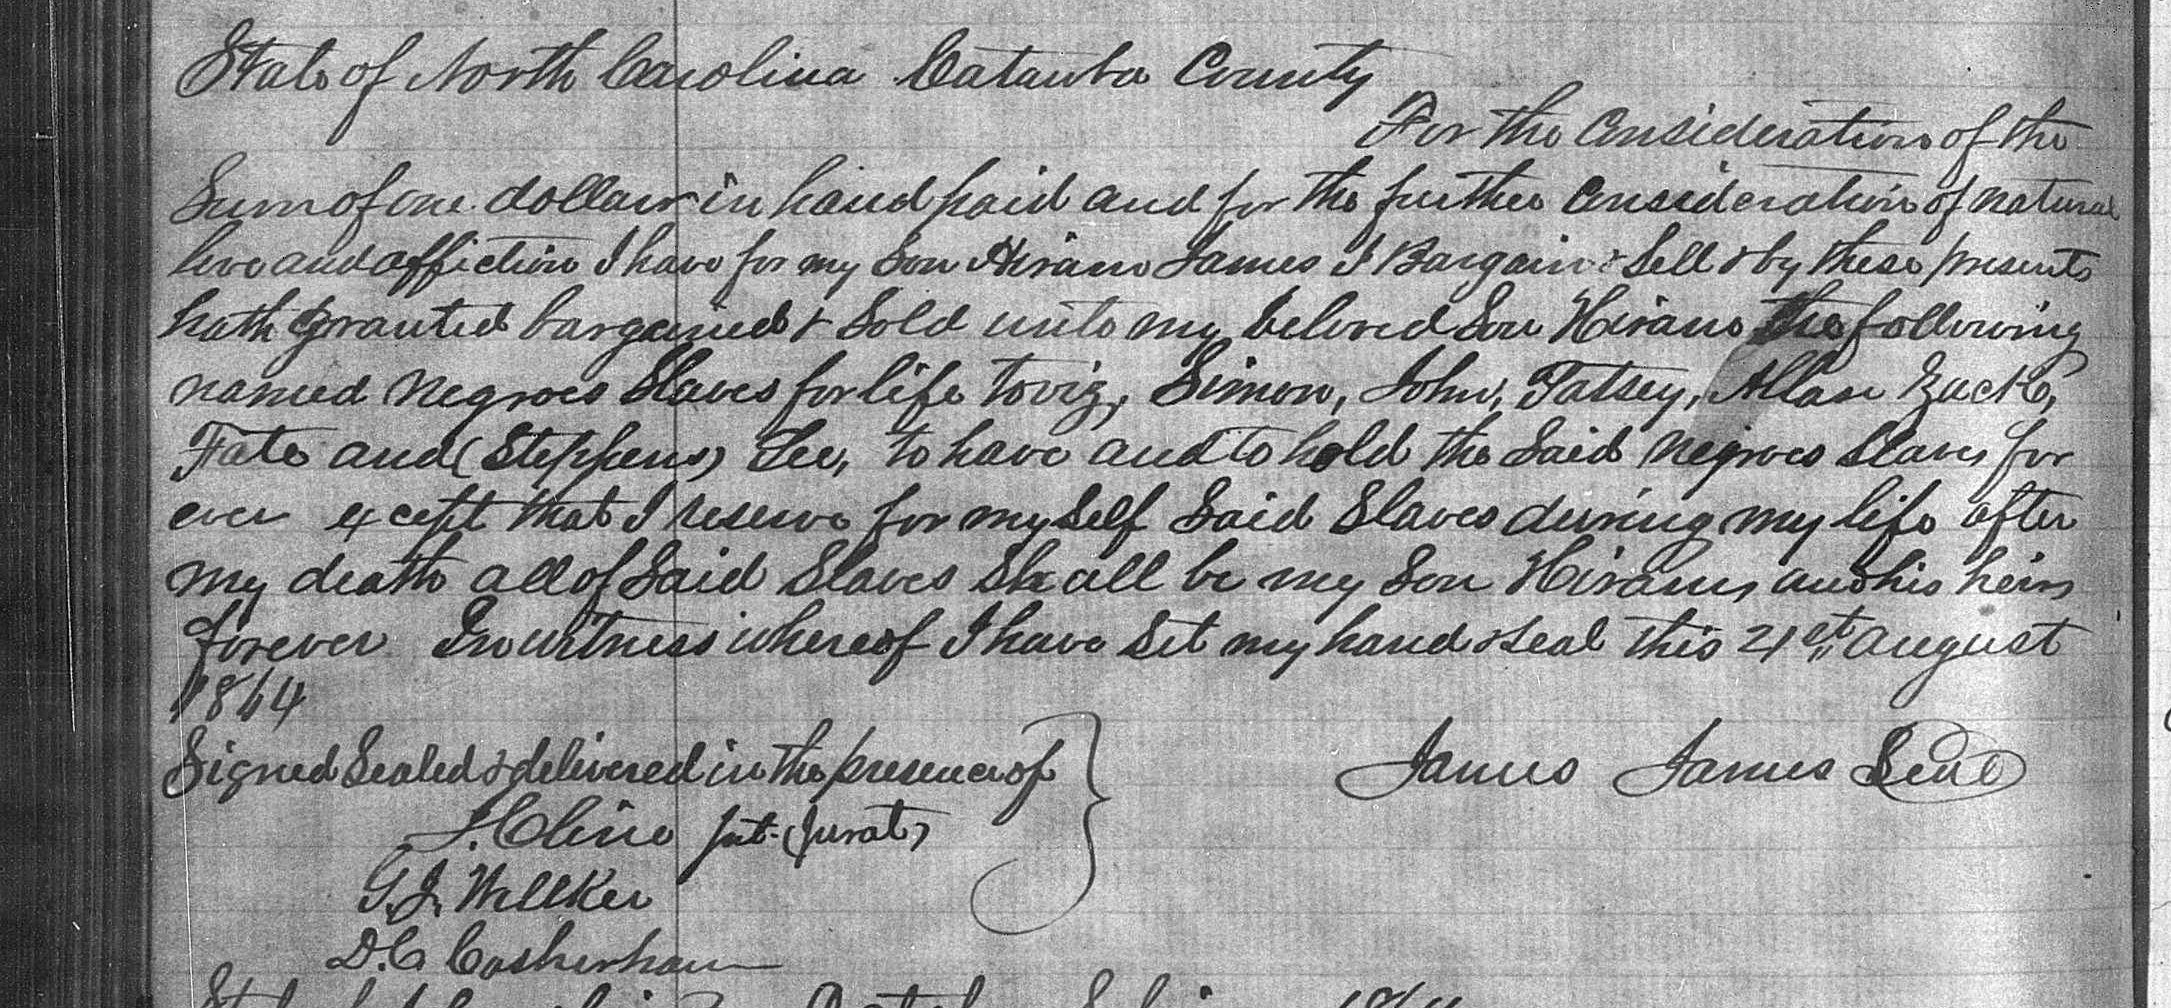 State of North Carolina Catawba County
For the Consideration of the
Sum of one dollar in hand paid and for the further Consideration of natural
love and affiction I have for my Son Hiram James I Bargain & Sell & by these presents
hath granted bargained & Sold unto my beloved Son Hiram the following
named negroes Slaves for life toviz, Simon, John, Patsey, Allan Zack,
Fate and (Stephens) Lee, to have and to hold the Said negroes Slaves for
ever except that I reserve for my Self Said Slaves during my life after
my death all of Said Slaves Shall be my Son Hirams and his heirs
forever In witness whereof I have Set my hand & Seal this 21st August
1864
Signed Sealed & delivered in the presence of
James James Seal
J. Cline (Jurat)
G. J. Wilkker
D. C.
State of North Carolina